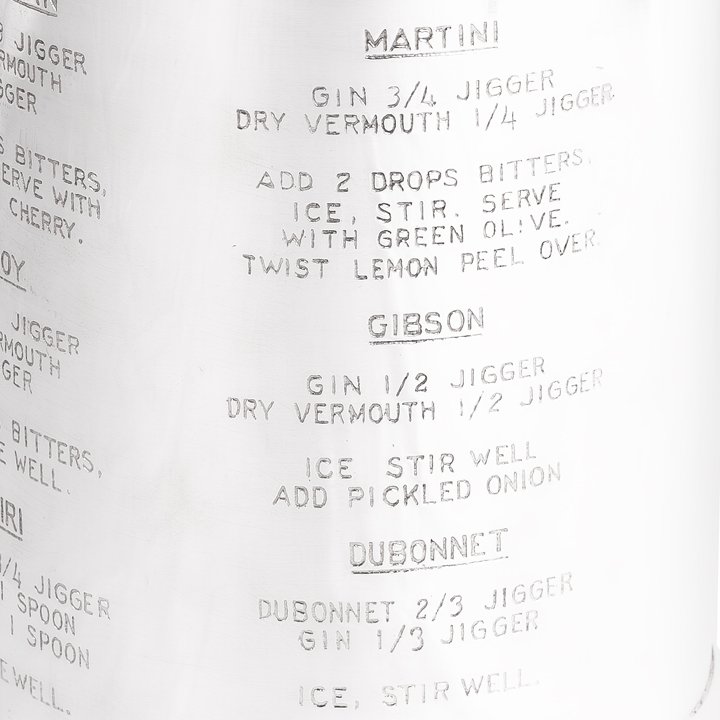 JIGGER
BITTERS,
WITH
CHERRY.
JIGGER
BITTERS,
WELL.
JIGGER
1 SPOON
1 SPOON
WELL.
MARTINI
GIN 3/4 JIGGER
DRY VERMOUTH 1/4 JIGGER
ADD 2 DROPS BITTERS,
ICE, STIR. SERVE
WITH GREEN OLIVE.
TWIST LEMON PEEL OVER.
GIBSON
GIN 1/2 JIGGER
DRY VERMOUTH 1/2 JIGGER
ICE STIR WELL
ADD PICKLED ONION
DUBONNET
DUBONNET 2/3 JIGGER
GIN 1/3 JIGGER
ICE, STIR WELL.